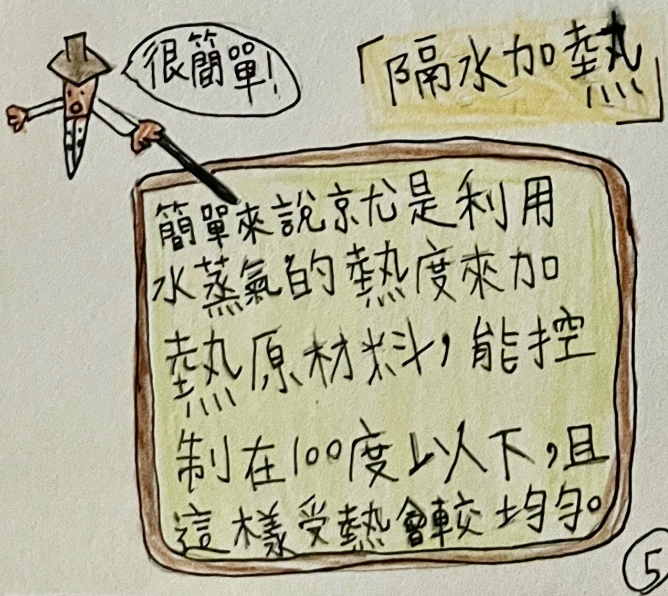 很簡單!
「隔水加熱」
簡單來說就是利用
水蒸氣的熱度來加
熱原材料,能控
制在100度以下,且
這樣受熱會較均勻。
5